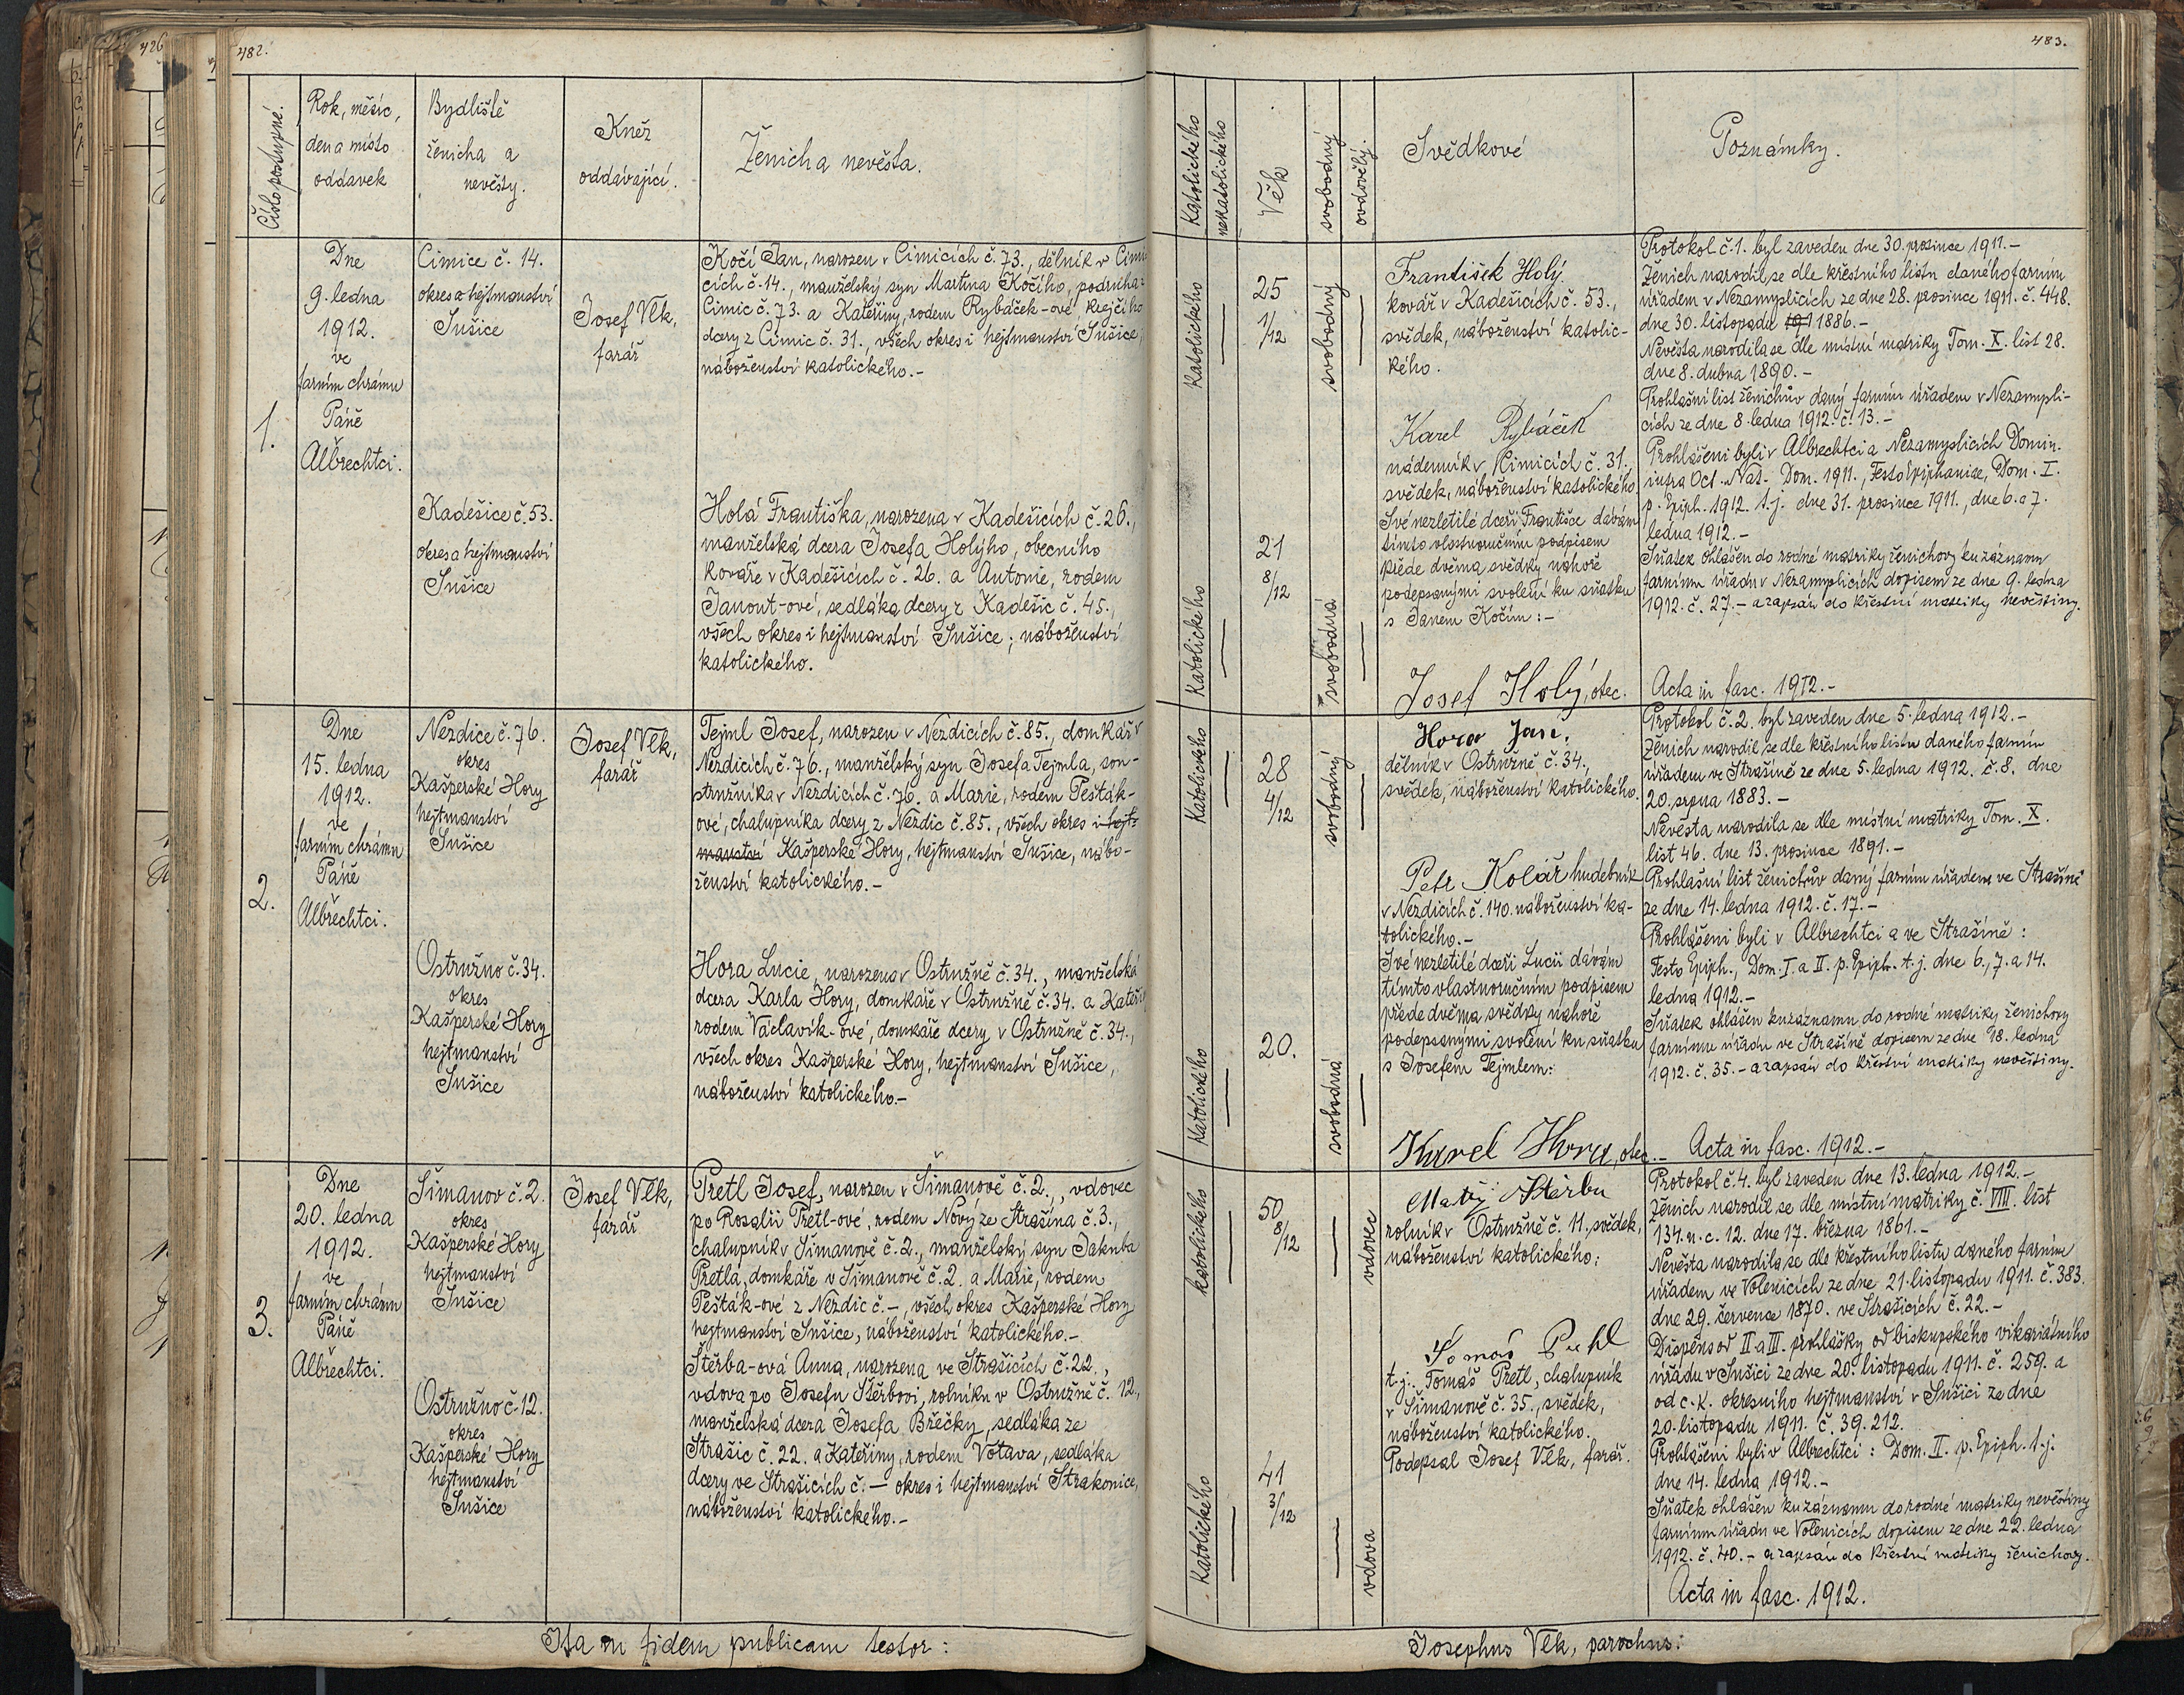 426
482.
Číslo postupné.
Rok, měsíc,
den a místo
oddavek
Bydliště
ženicha a
nevěsty.
Kněz
oddávající.
Ženich a nevěsta.
1.
Dne
9. ledna
1912.
ve
farním chrámu
Páně
Albrechtci.
Čimice č. 14.
okres a hejtmanství
Sušice
Kadešice č. 53.
okres a hejtmanství
Sušice
Josef Vlk,
farář
Kočí Jan, narozen v Čimicích č. 73., dělník v Čimi
cích č. 14., manželský syn Martina Kočího, podruha z
Čimic č. 73. a Kateřiny, rodem Rybáček-ové, krejčího
dcery z Čimic č. 31., všech okres i hejtmanství Sušice,
náboženství katolického.-
Holá Františka, narozena v Kadešicích č. 26.,
manželská dcera Josefa Holýho, obecního
kováře v Kadešicích č. 26. a Antonie, rodem
Janout-ové, sedláka dcery z Kadešic č. 45.,
všech okres i hejtmanství Sušice; náboženství
katolického.
2.
Dne
15. ledna
1912.
ve
farním chrámu
Páně
Albřechtci.
Nezdice č. 76.
okres
Kašperské Hory
hejtmanství
Sušice
Ostružno č. 34.
okres
Kašperské Hory
hejtmanství
Sušice
Josef Vlk,
farář
Tejml Josef, narozen v Nezdicích č. 85., domkář v
Nezdicích č. 76., manželský syn Josefa Tejmla, sou-
stružníka v Nezdicích č. 76. a Marie, rodem Pešták-
ové, chalupníka dcery z Nezdic č. 85., všech okres i hejt-
manství Kašperské Hory, hejtmanství Sušice, nábo-
ženství katolického.-
Hora Lucie, narozena v Ostružně č. 34., manželská
dcera Karla Hory, domkáře v Ostružně č. 34. a Kateři
rodem Václavík-ové, domkáře dcery v Ostružně č. 34.,
všech okres Kašperské Hory, hejtmanství Sušice,
náboženství katolického.-
3.
Dne
20. ledna
1912.
ve
farním chrámu
Páně
Albřechtci.
Šimanov č. 2.
okres
Kašperské Hory
hejtmanství
Sušice
Ostružno č. 12.
okres
Kašperské Hory
hejtmanství
Sušice
Josef Vlk,
farář
Pretl Josef, narozen v Šimanově č. 2., vdovec
po Rosalii Pretl-ové, rodem Nový ze Strašína č. 3.,
chalupník v Šimanově č. 2., manželský syn Jakuba
Pretla, domkáře v Šimanově č. 2. a Marie, rodem
Pešták-ové z Nezdic č. -, všech okres Kašperské Hory
hejtmanství Sušice, náboženství katolického.-
Štěrba-ová Anna, narozena ve Strašicích č. 22.,
vdova po Josefu Štěrbovi, rolníku v Ostružně č. 12.,
manželská dcera Josefa Břečky, sedláka ze
Strašic č. 22. a Kateřiny, rodem Votava, sedláka
dcery ve Strašicích č. - okres i hejtmanství Strakonice,
náboženství katolického.-
Ita in fidem publicam testor:
483.
Katolického
nekatolického
Věk
svobodný
ovdovělý.
Svědkové
Poznámky.
Katolického
25
1/12
svobodný
Katolického
21
8/12
svobodná
František Holý
kovář v Kadešicích č. 53.,
svědek, náboženství katolic-
kého.
Karel Rybáček
nádenník v Čimicích č. 31.,
svědek, náboženství katolického
Své nezletilé dceři Františce dávám
tímto vlastnoručním podpisem
přede dvěma svědky nahoře
podepsanými svolení ku sňatku
s Janem Kočím:-
Josef Holý, otec.
Protokol č. 1. byl zaveden dne 30. prosince 1911.-
Ženich narodil se dle křestního listu daného farním
úřadem v Nezamyslicích ze dne 28. prosince 1911. č. 448.
dne 30. listopadu 191 1886.-
Nevěsta narodila se dle místní matriky Tom. X. list 28.
dne 8. dubna 1890.-
Prohlašní list ženichův daný farním úřadem v Nezamysli-
cích ze dne 8. ledna 1912. č. 13.-
Prohlášeni byli v Albrechtci a Nezamyslicích Domin.
infra Oct. Nat. Dom. 1911., Festo Epiphaniae, Dom. I.
p. Epiph. 1912. t.j. dne 31. prosince 1911., dne 6. a 7.
ledna 1912.-
Sňatek ohlášen do rodné matriky ženichovy ku záznamu
farnímu úřadu v Nezamyslicích dopisem ze dne 9. ledna
1912. č. 27.- a zapsán do křestní matriky nevěstiny.
Acta in fasc. 1912.-
Katolického
28
4/12
svobodný
Katolického
20.
svobodná
Hora Jan,
dělník v Ostružně č. 34.,
svědek, náboženství katolického.
Petr Kolář hudebník
v Nezdicích č. 140. náboženství ka-
tolického.-
Své nezletilé dceři Lucii dávám
tímto vlastnoručním podpisem
přede dvěma svědky nahoře
podepsanými svolení ku sňatku
s Josefem Tejmlem:
Karel Hora, otec.-
Protokol č. 2. byl zaveden dne 5. ledna 1912.-
Ženich narodil se dle křestního listu daného farním
úřadem ve Strašíně ze dne 5. ledna 1912. č. 8. dne
20. srpna 1883.-
Nevěsta narodila se dle místní matriky Tom. X.
list 46. dne 13. prosince 1891.-
Prohlašní list ženichův daný farním úřadem ve Strašíně
ze dne 14. ledna 1912. č. 17.-
Prohlášeni byli v Albrechtci a ve Strašíně:
Festo Epiph., Dom. I. a II. p. Epiph. t.j. dne 6., 7. a 14.
ledna 1912.-
Sňatek ohlášen ku záznamu do rodné matriky ženichovy
farnímu úřadu ve Strašíně dopisem ze dne 18. ledna
1912. č. 35.- a zapsán do křestní matriky nevěstiny.
Acta in fasc. 1912.-
katolického
50
8/12
vdovec
Katolického
41
3/12
vdova
Matěj Štěrba
rolník v Ostružně č. 11., svědek,
náboženství katolického;
Tomáš
t.j. Tomáš Pretl, chalupník
v Šimanově č. 35., svědek,
náboženství katolického.
Podepsal Josef Vlk, farář.
Protokol č. 4. byl zaveden dne 13. ledna 1912.-
Ženich narodil se dle místní matriky č. VIII. list
134. n. c. 12. dne 17. března 1861.-
Nevěsta narodila se dle křestního listu daného farním
úřadem ve Volenicích ze dne 21. listopadu 1911. č. 383.
dne 29. července 1870. ve Strašicích č. 22.-
Dispens od II a III. prohlášky od biskupského vikariátního
úřadu v Sušici ze dne 20. listopadu 1911. č. 259. a
od c. k. okresního hejtmanství v Sušici ze dne
20. listopadu 1911. č. 39.212.
Prohlášeni byli v Albrechtci: Dom. II. p. Epiph. t.j.
dne 14. ledna 1912.-
Sňatek ohlášen ku záznamu do rodné matriky nevěstiny
farnímu úřadu ve Volenicích dopisem ze dne 22. ledna
1912. č. 40.- a zapsán do křestní matriky ženichovy.
Acta in fasc. 1912.
Josephus Vlk, parochus: